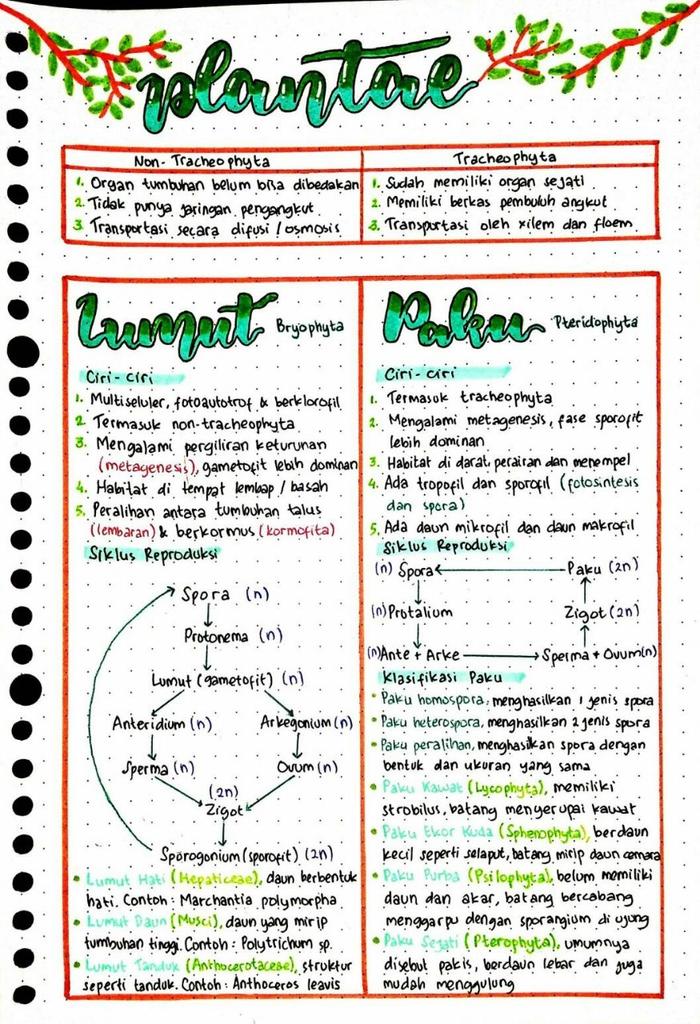 plantae
Non-Tracheophyta
1. Organ tumbuhan belum bisa dibedakan
2. Tidak punya jaringan pengangkut
3. Transportasi secara difusi / osmosis
Tracheophyta
1. Sudah memiliki organ sejati
2. Memiliki berkas pembuluh angkut
3. Transportasi oleh xilem dan floem
Lumut Bryophyta
Ciri-ciri
1. Multiseluler, fotoautotrof & berklorofil
2. Termasuk non-tracheophyta
3. Mengalami pergiliran keturunan
(metagenesis), gametofit lebih dominan
4. Habitat di tempat lembap / basah
5. Peralihan antara tumbuhan talus
(lembaran) & berkormus (kormofita)
Siklus Reproduksi
Spora (n)
Protonema (n)
Lumut (gametofit) (n)
Anteridium (n) Arkegonium (n)
Sperma (n) Ovum (n)
(2n)
Zigot
Sporogonium (sporofit) (2n)
• Lumut Hati (Hepaticeae), daun berbentuk
hati. Contoh: Marchantia polymorpha
• Lumut Daun (Musci), daun yang mirip
tumbuhan tinggi. Contoh: Polytrichum sp.
• Lumut Tanduk (Anthocerotaceae), struktur
seperti tanduk. Contoh: Anthoceros leavis
Paku Pteridophyta
Ciri-ciri
1. Termasuk tracheophyta
2. Mengalami metagenesis, fase sporofit
lebih dominan
3. Habitat di darat, perairan dan menempel
4. Ada tropofil dan sporofil (fotosintesis
dan spora)
5. Ada daun mikrofil dan daun makrofil
Siklus Reproduksi
(n) Spora Paku (2n)
(n) Protalium Zigot (2n)
(n) Ante + Arke Sperma + Ovum (n)
Klasifikasi Paku
• Paku homospora, menghasilkan 1 jenis spora
• Paku heterospora, menghasilkan 2 jenis spora
• Paku peralihan, menghasilkan spora dengan
bentuk dan ukuran yang sama
• Paku Kawat (Lycophyta), memiliki
strobilus, batang menyerupai kawat
• Paku Ekor Kuda (Sphenophyta), berdaun
kecil seperti selaput, batang mirip daun cemara
• Paku Purba (Psilophyta), belum memiliki
daun dan akar, batang bercabang
menggarpu dengan sporangium di ujung
• Paku Sejati (Pterophyta), umumnya
disebut pakis, berdaun lebar dan juga
mudah menggulung